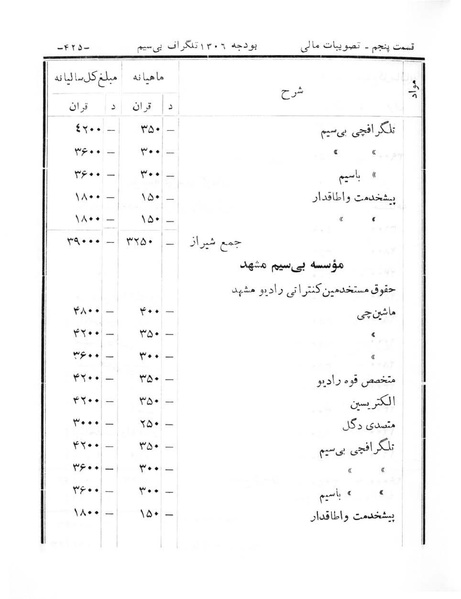 قسمت پنجم - تصویبات مالی بودجه ۱۳۰۶ تلگراف بی‌سیم -۴۲۵-
مواد شرح ماهیانه مبلغ کل سالیانه
د قران د قران
تلگرافچی بی‌سیم – ۳۵۰ – ۴۲۰۰
» » – ۳۰۰ – ۳۶۰۰
» باسیم – ۳۰۰ – ۳۶۰۰
پیشخدمت و اطاقدار – ۱۵۰ – ۱۸۰۰
» » – ۱۵۰ – ۱۸۰۰
جمع شیراز – ۳۲۵۰ – ۳۹۰۰۰
مؤسسه بی‌سیم مشهد
حقوق مستخدمین کنتراتی رادیو مشهد
ماشین‌چی – ۴۰۰ – ۴۸۰۰
» – ۳۵۰ – ۴۲۰۰
» – ۳۰۰ – ۳۶۰۰
متخصص قوه رادیو – ۳۵۰ – ۴۲۰۰
الکتریسین – ۳۵۰ – ۴۲۰۰
متصدی دگل – ۲۵۰ – ۳۰۰۰
تلگرافچی بی‌سیم – ۳۵۰ – ۴۲۰۰
» » – ۳۰۰ – ۳۶۰۰
» » باسیم – ۳۰۰ – ۳۶۰۰
پیشخدمت و اطاقدار – ۱۵۰ – ۱۸۰۰